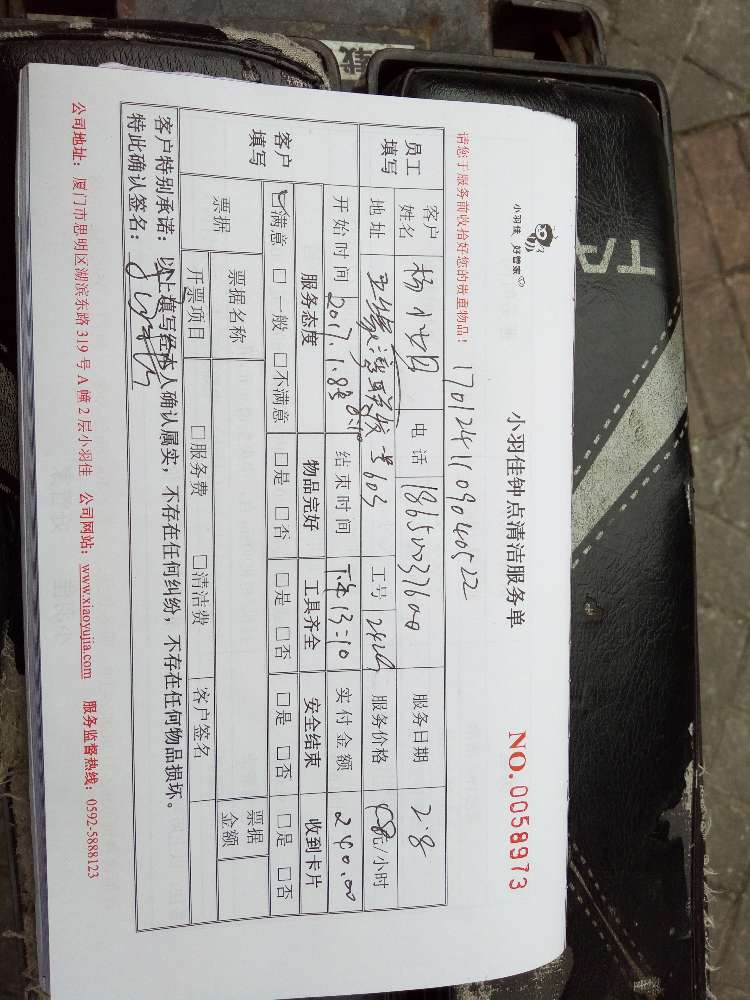 载
TA
小羽佳 好管家
小羽佳钟点清洁服务单
NO.0058973
请您于服务前收拾好您的贵重物品!
1701241109040522
员工填写 客户姓名 杨小姐 电话 服务日期 2.8
地址 603 工号 服务价格 元/小时
开始时间 2017. 结束时间 13:10 实付金额 240.00
客户填写 服务态度 物品完好 工具齐全 安全结束 收到卡片
☑满意 □一般 □不满意 □是 □否 □是 □否 □是 □否 □是 □否
票据 票据名称 票据金额
开票项目 □服务费 □清洁费 客户签名
客户特别承诺:以上填写经本人确认属实,不存在任何纠纷,不存在任何物品损坏。
特此确认签名:
公司地址:厦门市思明区湖滨东路319号A幢2层小羽佳 公司网站:www.xiaoyujia.com 服务监督热线:0592-5888123